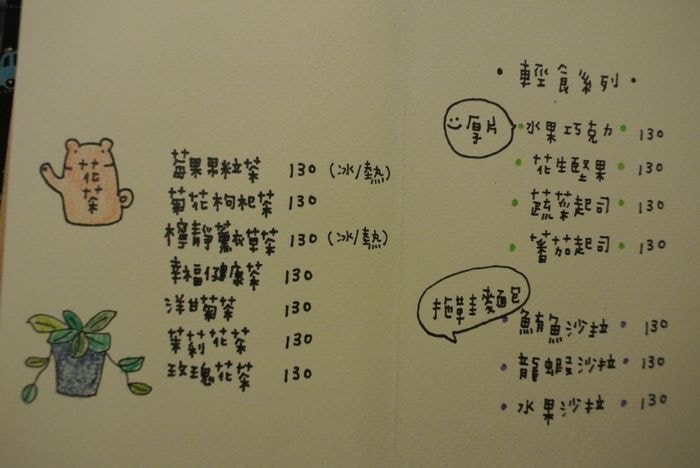 花
茶
莓果果粒茶 130 (冰/熱)
菊花枸杞茶 130
檸靜薰衣草茶 130 (冰/熱)
幸福健康茶 130
洋甘菊茶 130
茉莉花茶 130
玫瑰花茶 130
•輕食系列•
厚片
•水果巧克力• 130
•花生堅果• 130
•蔬菜起司• 130
•蕃茄起司• 130
拖鞋麵包
•鮪魚沙拉• 130
•龍蝦沙拉• 130
•水果沙拉• 130